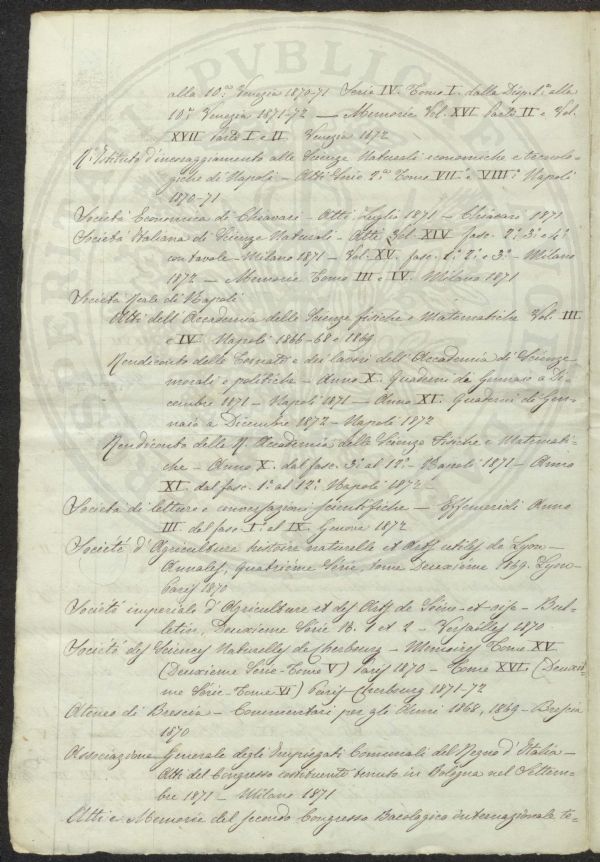 alla 10.a Venezia 1870-71 Serie IV. Tomo I. dalla Disp. 1.a alla
10.a Venezia 1871-72 — Memorie Vol. XVI Parte II e Vol.
XVII Parte I e II. Venezia 1872
R.o Istituto d'incoraggiamento alle Scienze Naturali economiche e tecnolo-
giche di Napoli — Atti Serie 2.a Tomo VII. e VIII. Napoli
1870-71
Società Economica di Chiavari — Atti Luglio 1871 — Chiavari 1871
Società Italiana di Scienze Naturali — Atti Vol. XIV fasc. 2.o 3.o e 4.o
con tavole — Milano 1871 — Vol. XV. fasc. 1.o 2.o e 3.o — Milano
1872 — Memorie Tomo III e IV. Milano 1871
Società Reale di Napoli
Atti dell'Accademia delle Scienze fisiche e Matematiche Vol. III
e IV. Napoli 1866-68 e 1869
Rendiconto delle Tornate e dei lavori dell'Accademia di Scienze
morali e politiche — Anno X. Quaderni da Gennaio a Di-
cembre 1871 — Napoli 1871 — Anno XI. Quaderni di Gen-
naio a Dicembre 1872 — Napoli 1872
Rendiconto della R. Accademia delle Scienze Fisiche e Matemati-
che — Anno X. dal fasc. 3.o al 12.o — Napoli 1871 — Anno
XI. dal fasc. 1.o al 12.o Napoli 1872 —
Società di letture e conversazioni scientifiche — Effemeridi Anno
III dal fasc. I.o al IX. Genova 1872
Société d'Agriculture histoire naturelle et Arts utiles de Lyon —
Annales, Quatrième Série, Tome Deuxieme 1869. Lyon-
Paris 1870
Société imperiale d'Agriculture et des Arts de Seine-et-oise — Bul-
letin, Deuxieme Série N. 1 et 2 — Versailles 1870
Société des Sciences Naturelles de Cherbourg — Memoires Tome XV
(Deuxieme Serie-Tome V) Paris 1870 — Tome XVI. (Deuxie-
me Série-Tome VI) Paris-Cherbourg 1871-72
Ateneo di Brescia — Commentari per gli Anni 1868, 1869 — Brescia
1870
Associazione Generale degli Impiegati Comunali del Regno d'Italia —
Atti del Congresso costituente tenuto in Bologna nel Settem-
bre 1871 — Milano 1871
Atti e Memorie del secondo Congresso Bacologico internazionale te-